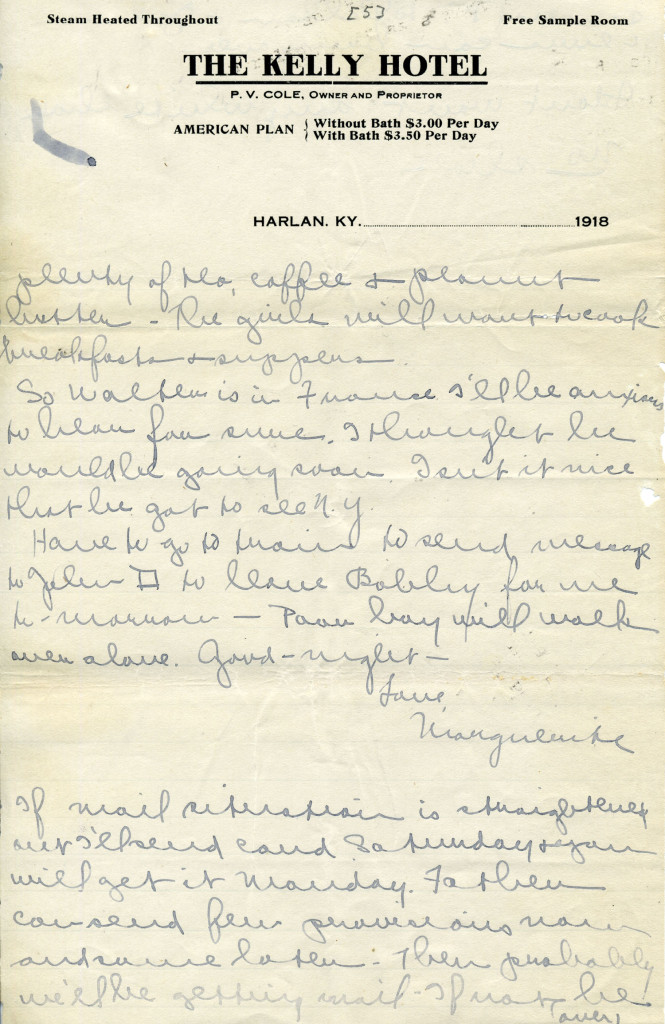 Steam Heated Throughout
[5]
Free Sample Room
THE KELLY HOTEL
P. V. COLE, OWNER AND PROPRIETOR
AMERICAN PLAN { Without Bath $3.00 Per Day
With Bath $3.50 Per Day
HARLAN, KY. 1918
plenty of tea, coffee & peanut
butter – The girls will want to cook
breakfasts & suppers
So Walter is in France I'll be anxious
to hear for sure. I thought he
would be going soon. Isn't it nice
that he got to see N.Y.
Have to go to train to send message
to John to leave Bobby for me
to-morrow – Poor boy will walk
over alone. Good-night –
Love
Marguerite
If mail situation is straightened
out I'll send card Saturday & you
will get it Monday. Father
can send few provisions now
and some later – Then probably
we'll be getting mail – If not, he
(over)